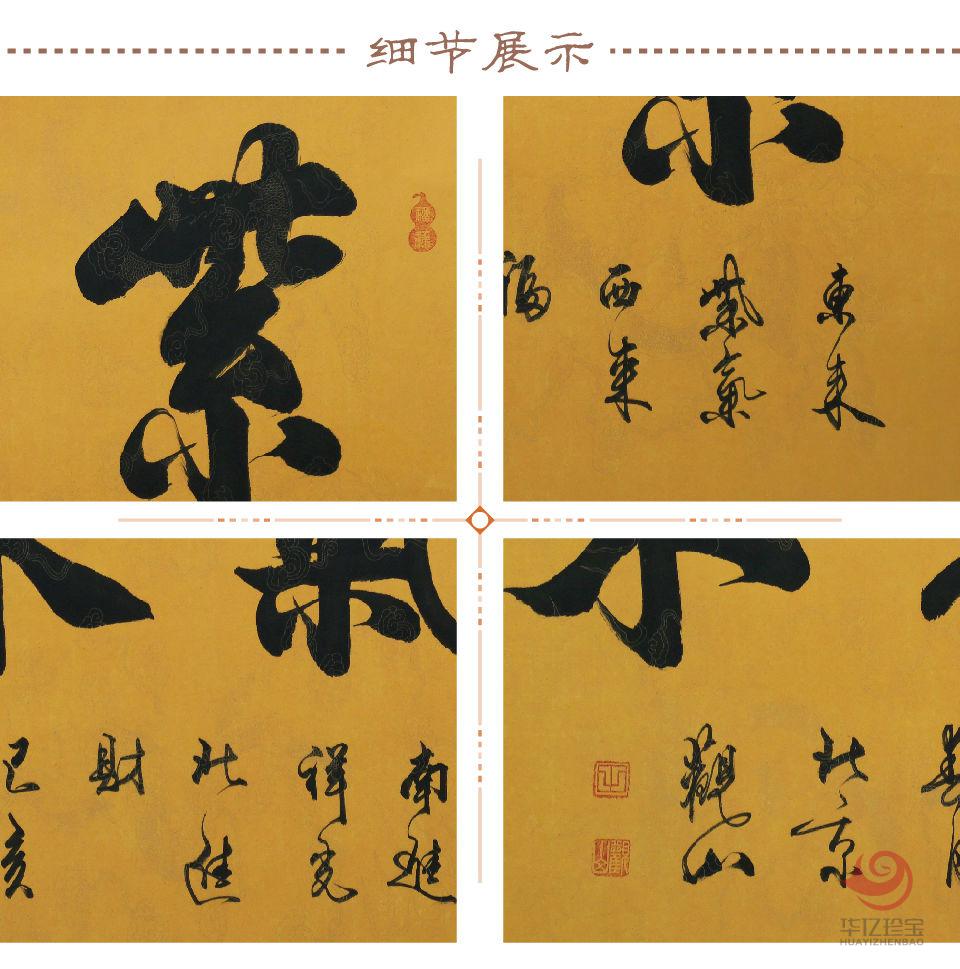 细节展示
紫
東来
紫氣
西来
福
南進
祥光
北進
財
己亥
北京
觀山
华亿珍宝
HUAYIZHENBAO